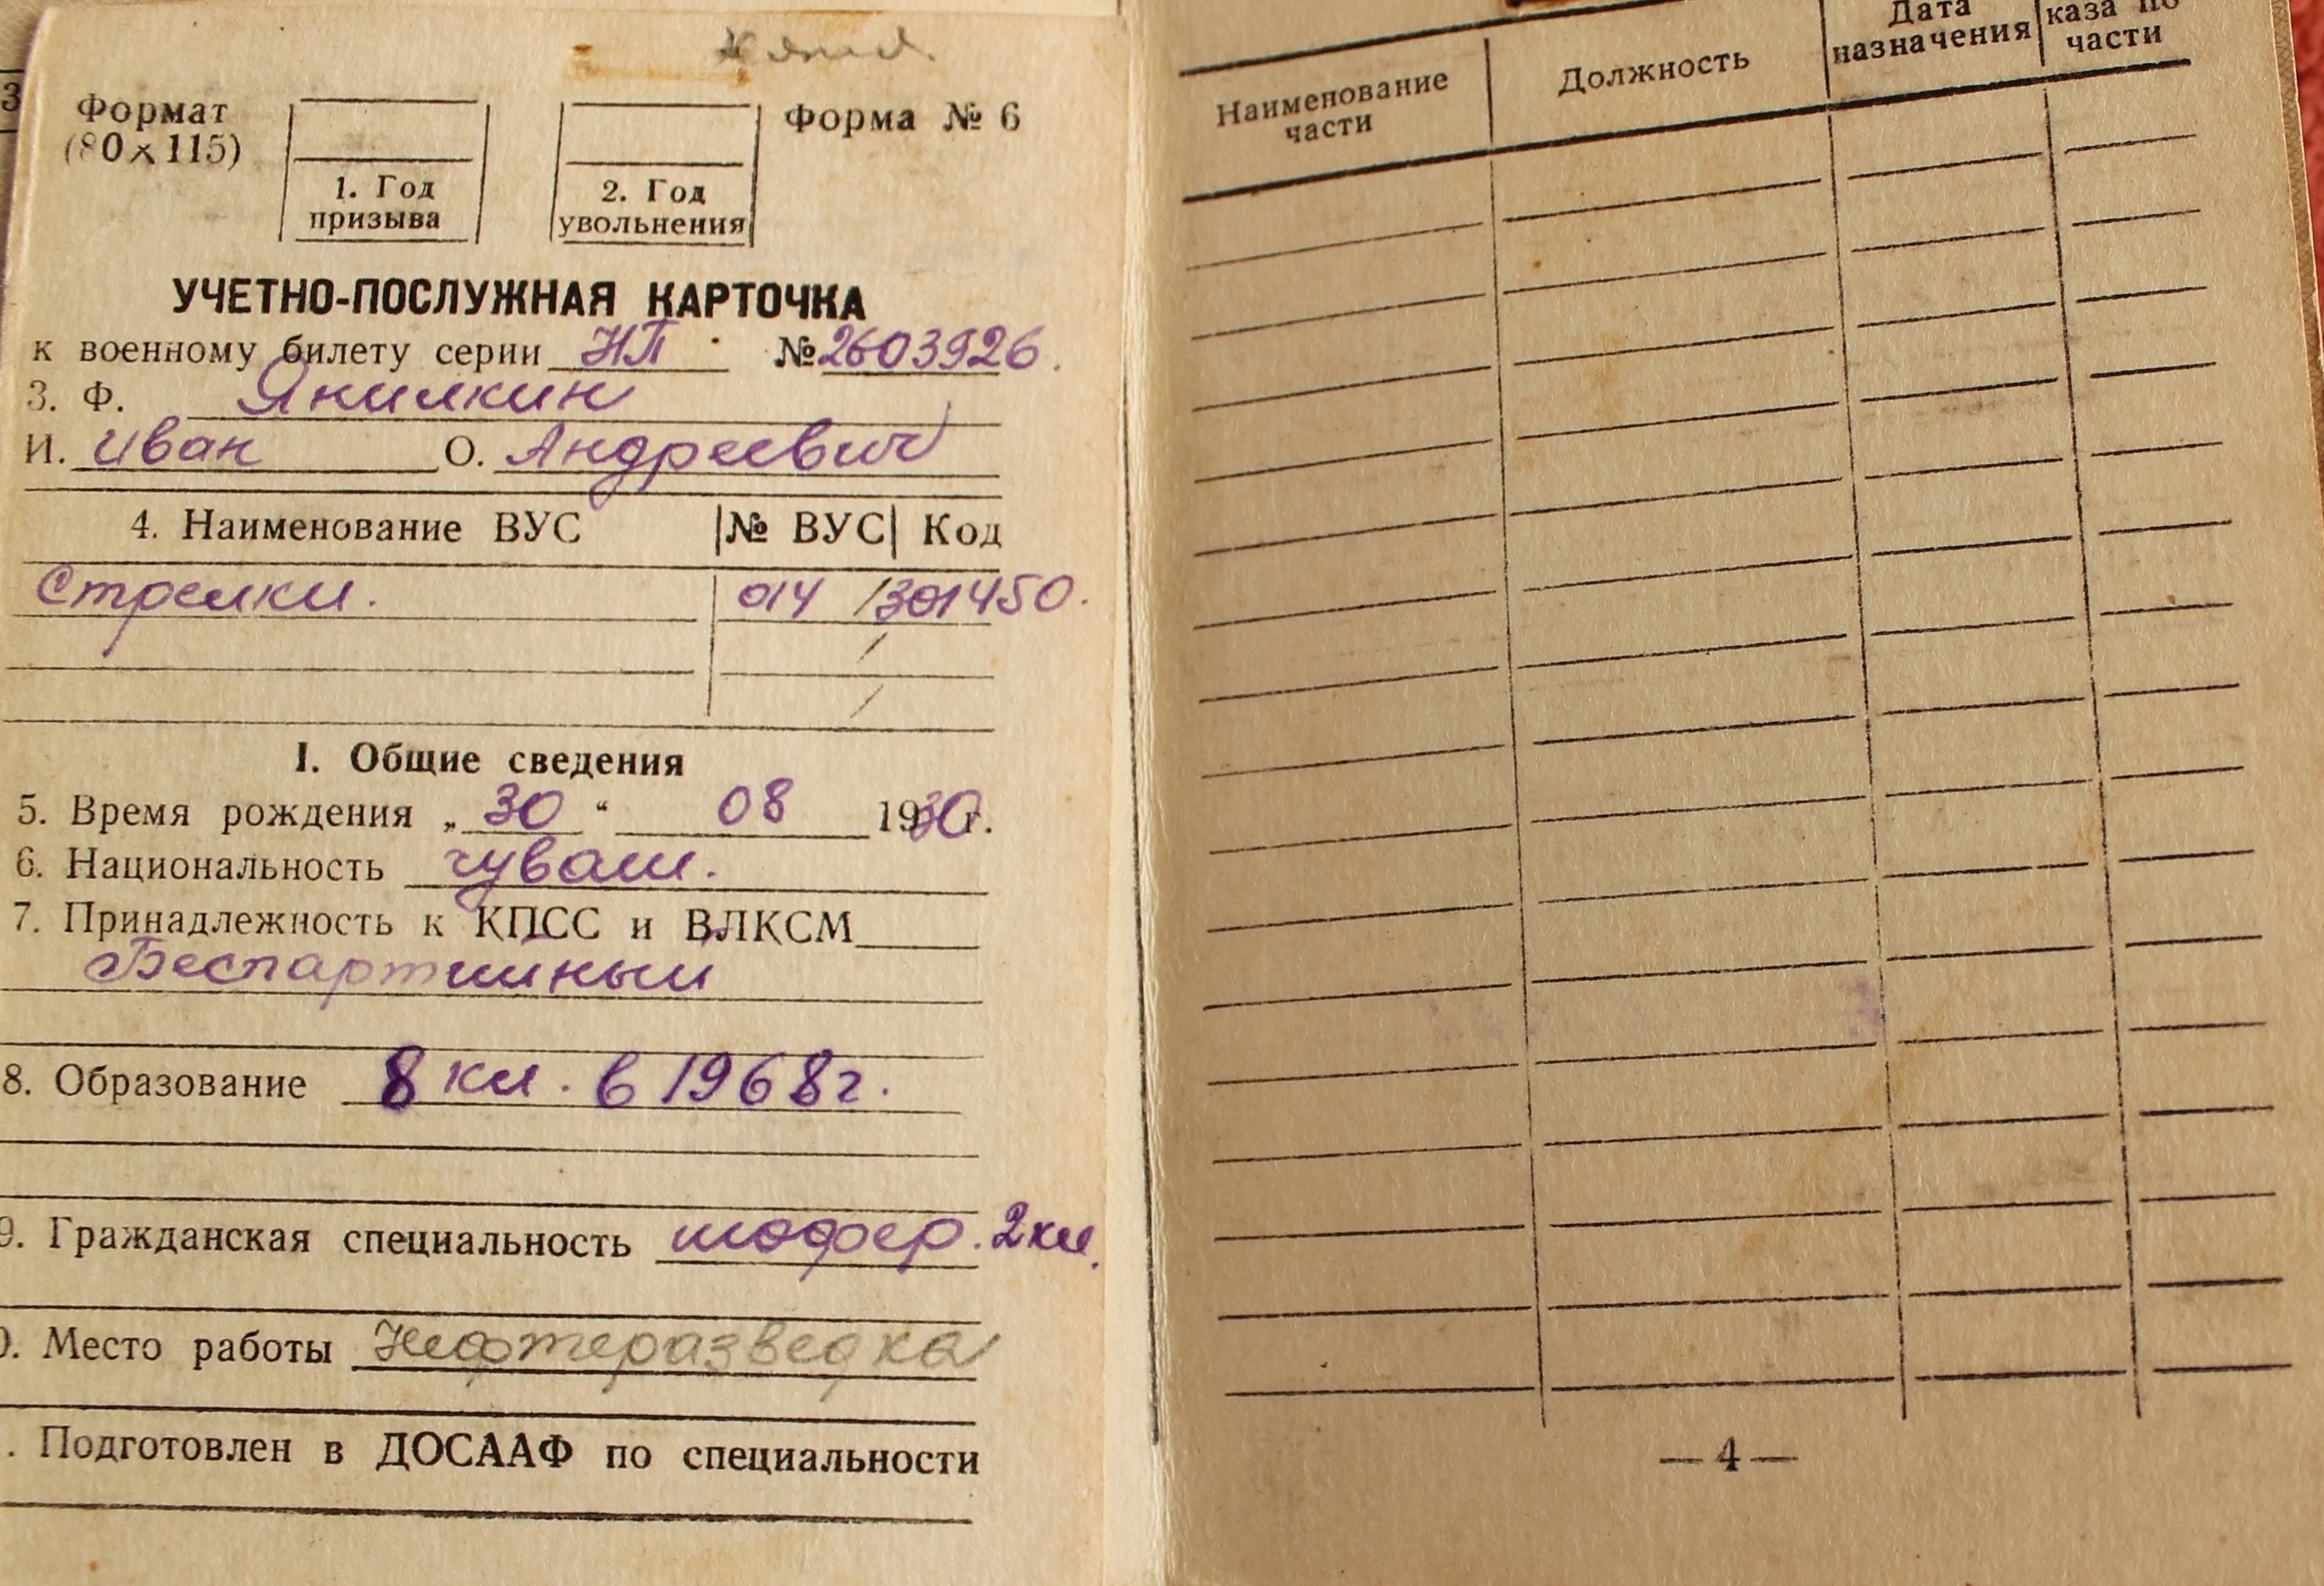 Формат
(80×115)
1. Год
призыва
2. Год
увольнения
Форма № 6
УЧЕТНО-ПОСЛУЖНАЯ КАРТОЧКА
к военному билету серии НП № 2603926.
3. Ф. Янилкин
И. Иван О. Андреевич
4. Наименование ВУС № ВУС Код
Стрелки. 014 / 301450.
/
/
I. Общие сведения
5. Время рождения „30“ 08 1930г.
6. Национальность чуваш.
7. Принадлежность к КПСС и ВЛКСМ
Беспартийный
8. Образование 8 кл. в 1968 г.
9. Гражданская специальность шофер. 2 кл.
0. Место работы Нефтеразведка
. Подготовлен в ДОСААФ по специальности
3
Наименование
части
Должность
Дата
назначения
каза по
части
— 4 —